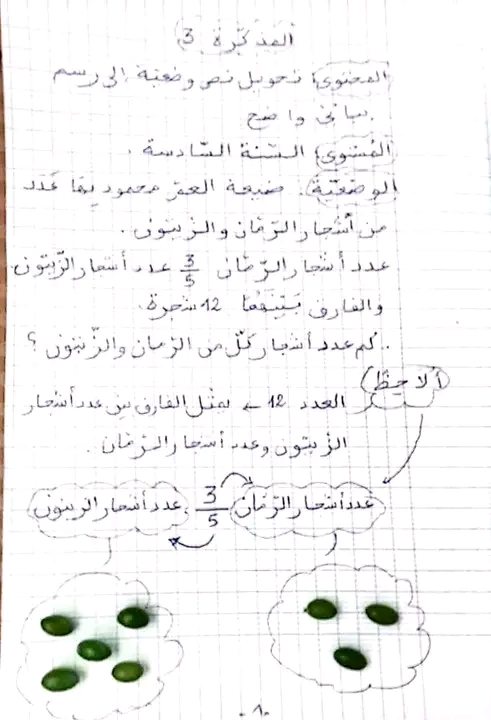 المذكرة 3
المحتوى: تحويل نص وضعية الى رسم
بياني واضح.
المستوى: السّنة السّادسة.
الوضعيّة: ضيعة العمّ محمود بها عدد
من أشجار الرّمّان والزّيتون.
عدد أشجار الرّمّان 3/5 عدد أشجار الزّيتون
والفارق بَيْنَهُمَا 12 شجرة.
. كم عدد أشجار كلّ من الرّمان والزّيتون؟
ألاحِظُ
العدد 12 ← يمثّل الفارق بين عدد أشجار
الزّيتون وعدد أشجار الرّمّان.
عدد أشجار الرّمّان 3/5 عدد أشجار الزيتون
.1.